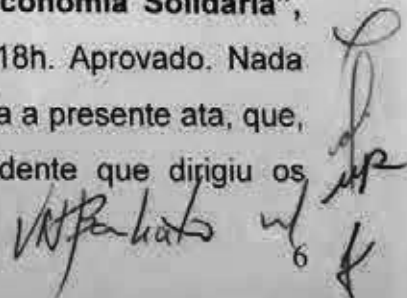 conomia Solidária",
18h. Aprovado. Nada
a a presente ata, que,
dente que dirigiu os
6